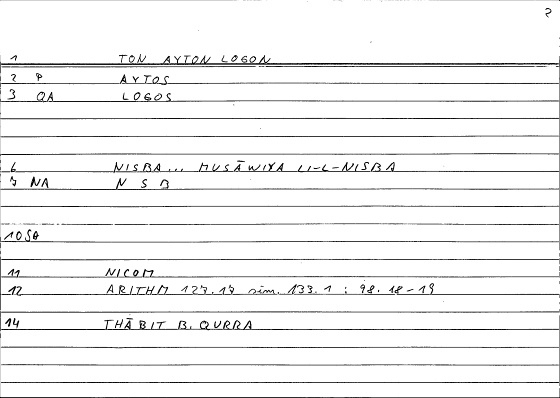 2
1 TON AYTON LOGON
2 P AYTOS
3 QA LOGOS
6 NISBA... MUSĀWIYA LI-L-NISBA
7 NA N S B
10 SG
11 NICOM
12 ARITHM 127.17 sim. 133.1 : 98.18-19
14 THĀBIT B. QURRA